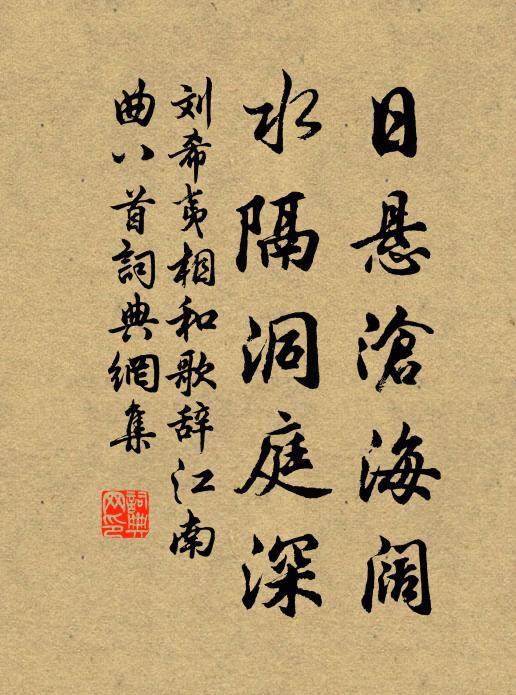 日悬滄海阔
水隔洞庭深
刘希夷相和歌辞江南
曲八首詞典網集
詞典网印